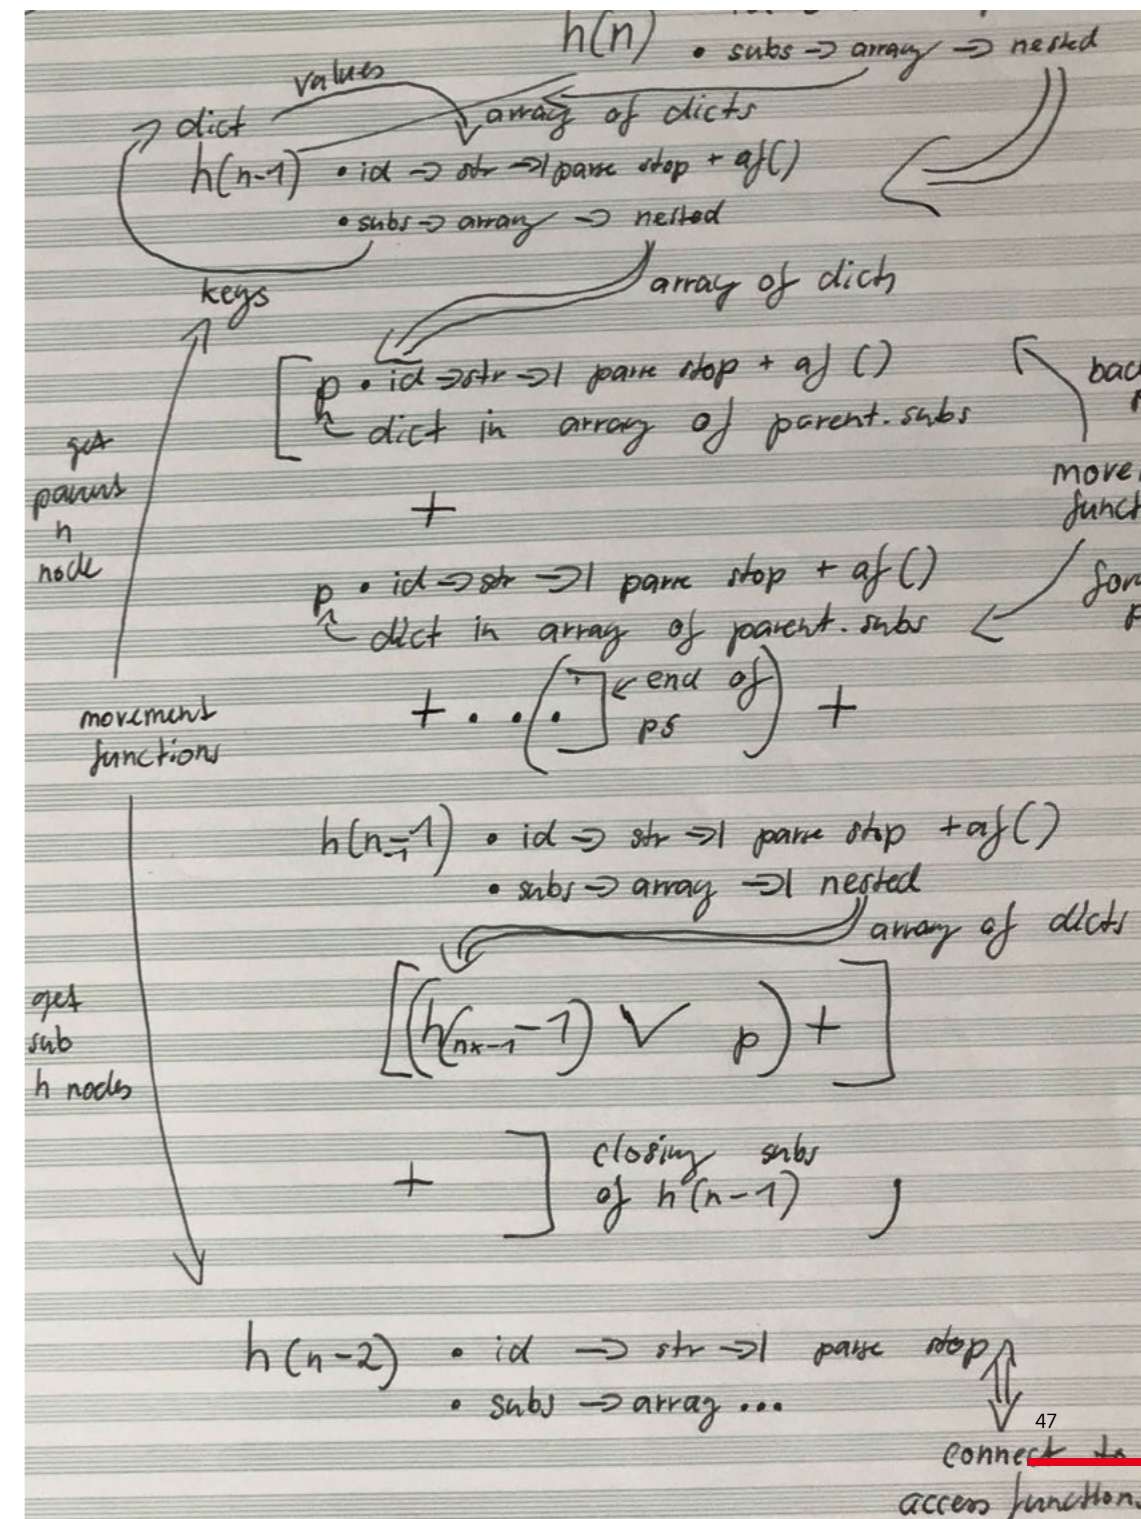 h(n) • subs → array → nested
values
dict
array of dicts
h(n-1) • id → str →| parse stop + af()
• subs → array → nested
keys
array of dicts
[ p • id → str →| parse stop + af ()
dict in array of parent.subs
get
h
node
+
p • id → str →| parse stop + af()
dict in array of parent.subs
+ . . ( . ] ← end of ps ) +
movement
functions
h(n-1) • id → str →| parse stop + af()
• subs → array →| nested
array of dicts
get
sub
h nodes
[(h(nx-1 -1) ∨ p) + ]
+ ] closing subs
of h(n-1) ,
h(n-2) • id → str →| parse stop
• subs → array ...
47
connect to
access function